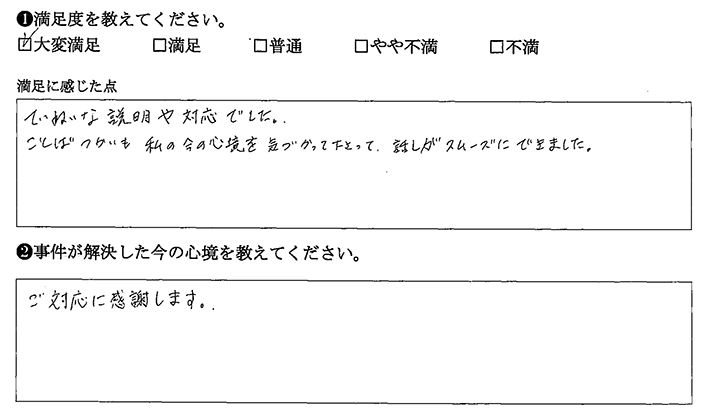 ❶満足度を教えてください。
☑大変満足 □満足 □普通 □やや不満 □不満
満足に感じた点
ていねいな説明や対応でした。
ことばつかいも 私の今の心境を気づかって下さって、話しがスムーズにできました。
❷事件が解決した今の心境を教えてください。
ご対応に感謝します。